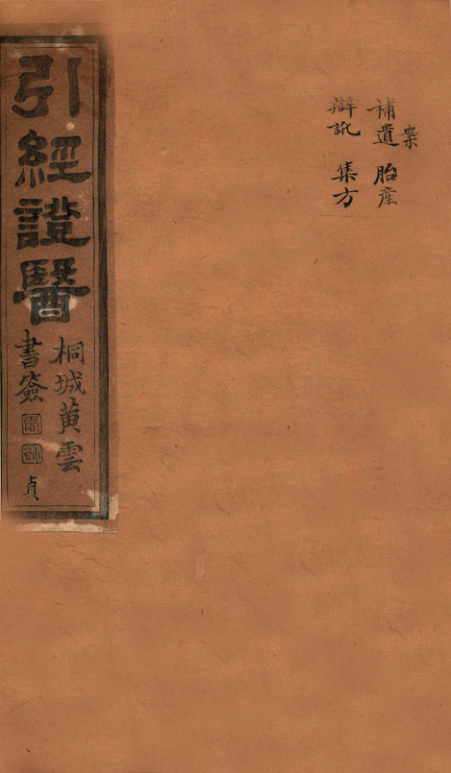 引經證醫
桐城黃雲
書簽
貞
案
補遺 胎產
辯訛 集方